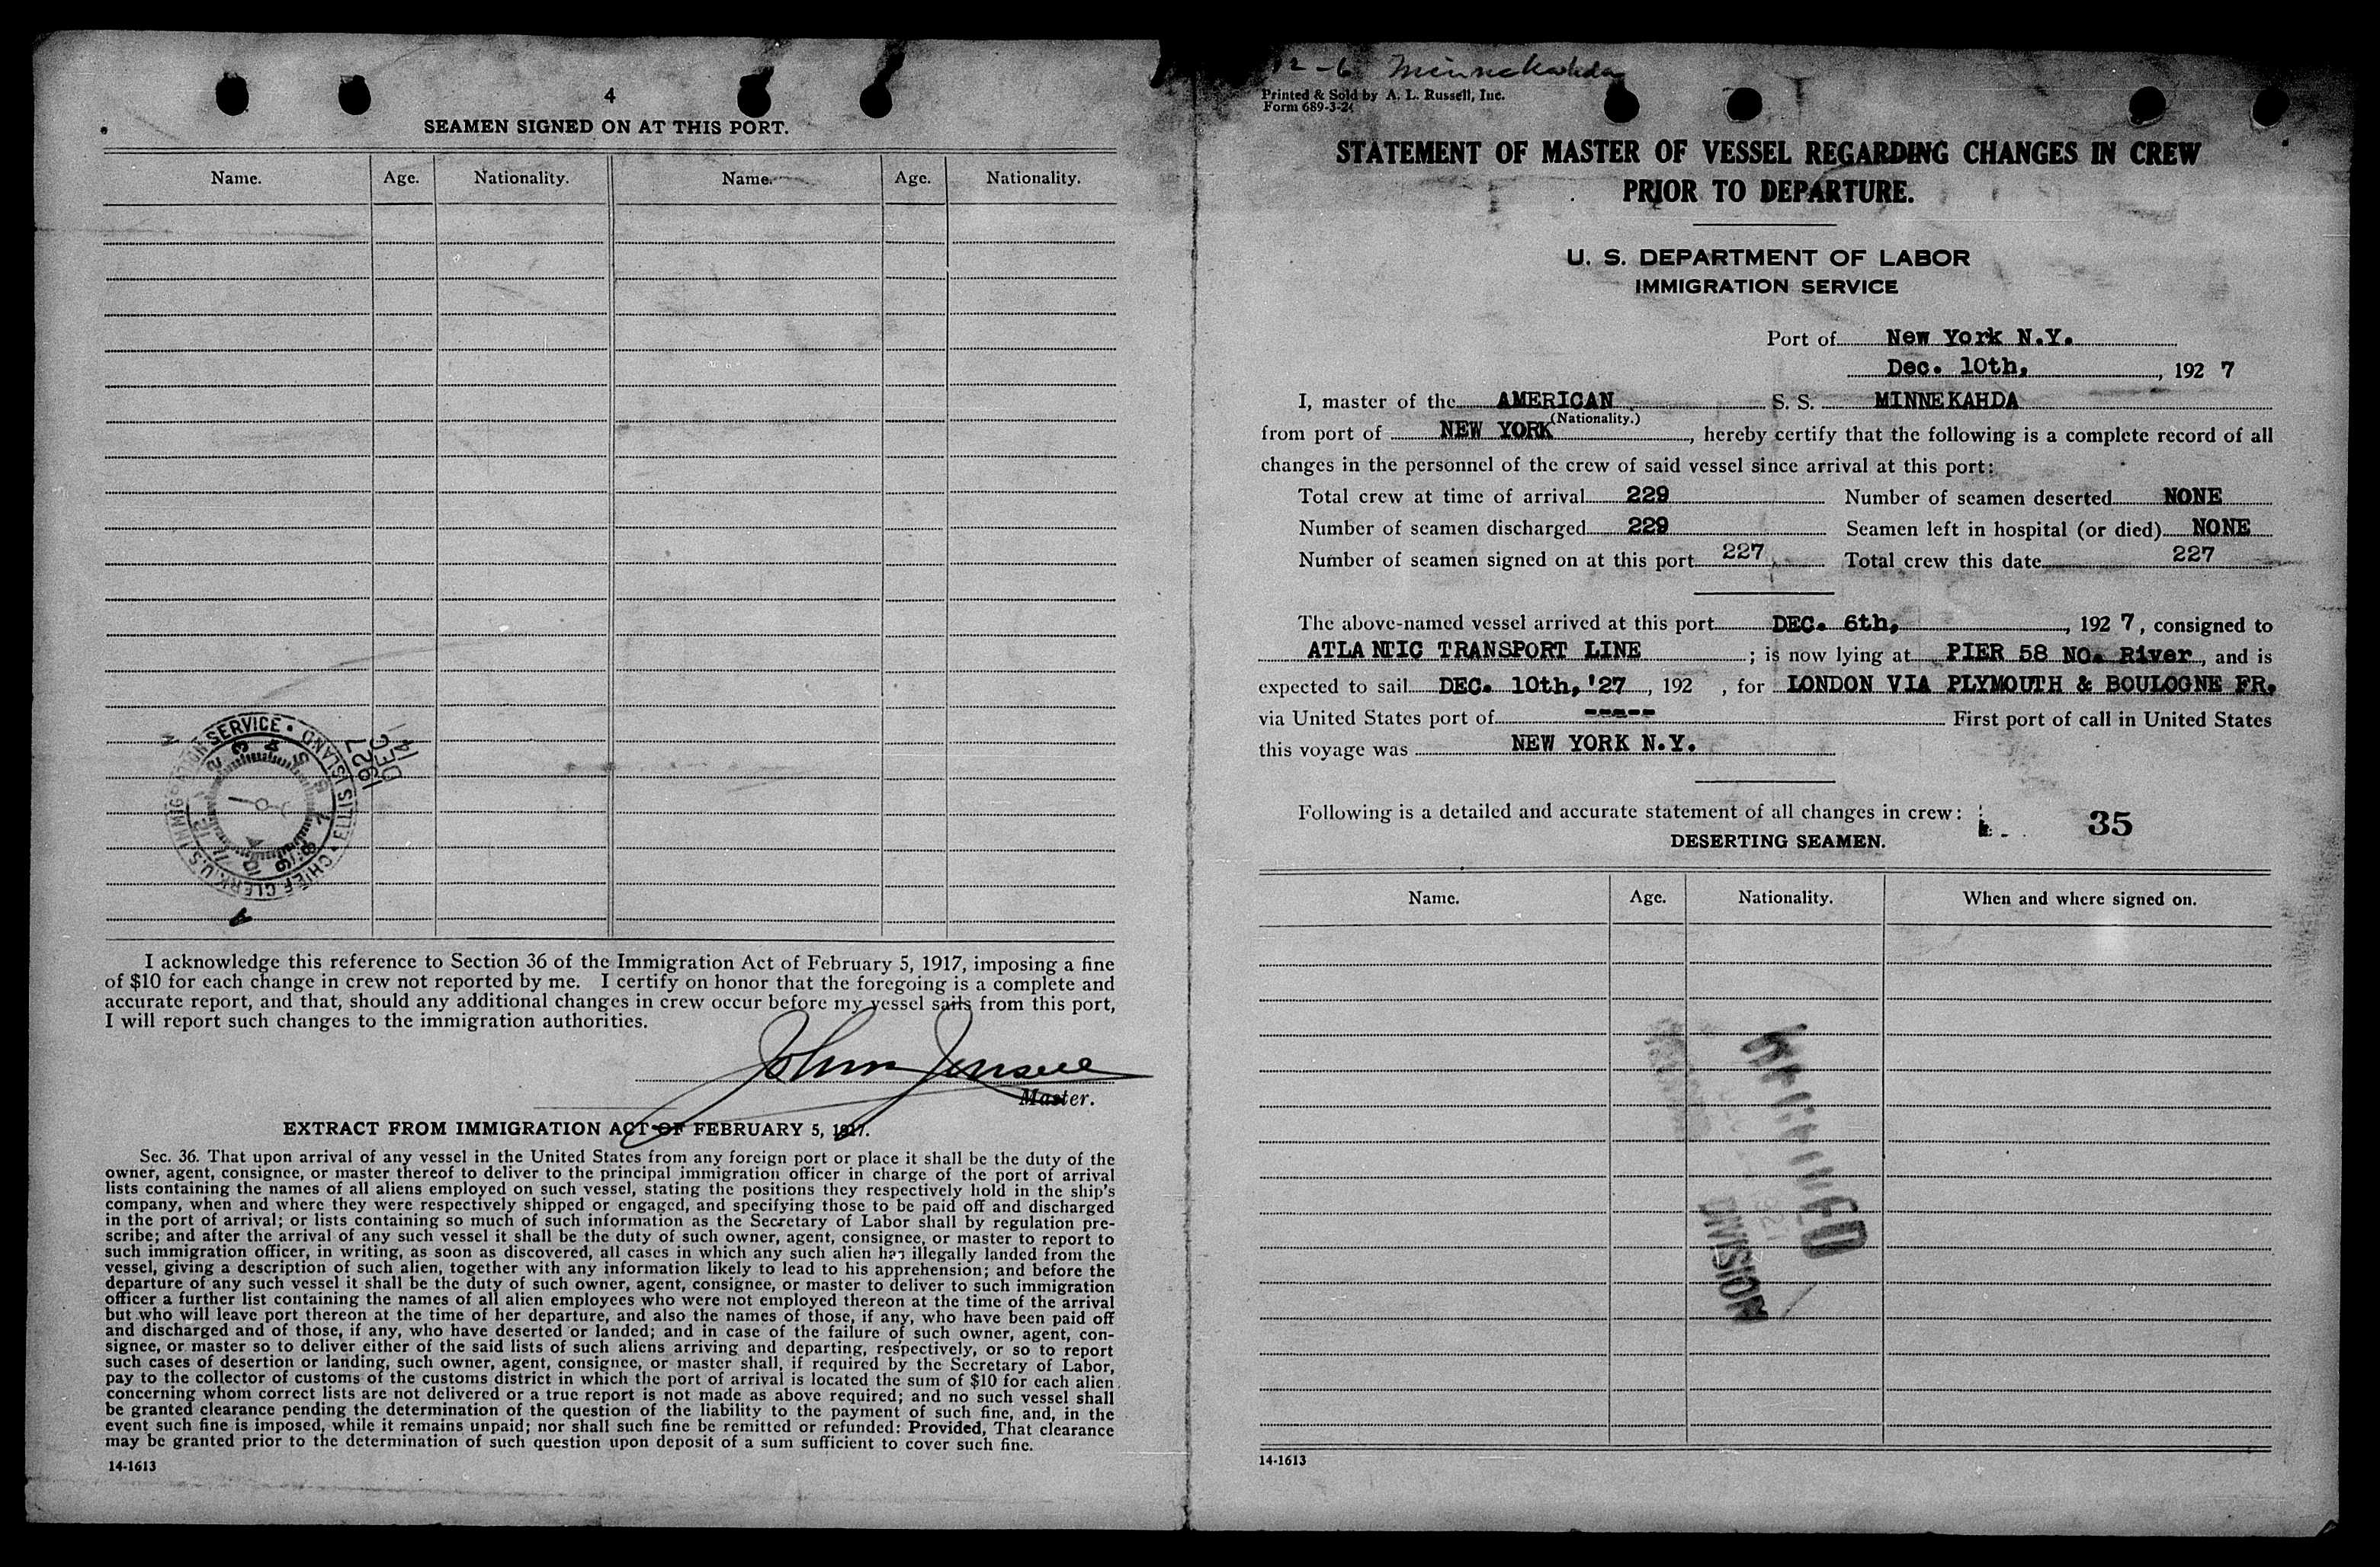 4
SEAMEN SIGNED ON AT THIS PORT.
Name. Age. Nationality. Name. Age. Nationality.
U.S. IMMIGRATION SERVICE • ELLIS ISLAND • CHIEF CLERK
1927
DEC
14
I acknowledge this reference to Section 36 of the Immigration Act of February 5, 1917, imposing a fine
of $10 for each change in crew not reported by me. I certify on honor that the foregoing is a complete and
accurate report, and that, should any additional changes in crew occur before my vessel sails from this port,
I will report such changes to the immigration authorities.
John Jensen
Master.
EXTRACT FROM IMMIGRATION ACT OF FEBRUARY 5, 1917.
Sec. 36. That upon arrival of any vessel in the United States from any foreign port or place it shall be the duty of the
owner, agent, consignee, or master thereof to deliver to the principal immigration officer in charge of the port of arrival
lists containing the names of all aliens employed on such vessel, stating the positions they respectively hold in the ship's
company, when and where they were respectively shipped or engaged, and specifying those to be paid off and discharged
in the port of arrival; or lists containing so much of such information as the Secretary of Labor shall by regulation pre-
scribe; and after the arrival of any such vessel it shall be the duty of such owner, agent, consignee, or master to report to
such immigration officer, in writing, as soon as discovered, all cases in which any such alien has illegally landed from the
vessel, giving a description of such alien, together with any information likely to lead to his apprehension; and before the
departure of any such vessel it shall be the duty of such owner, agent, consignee, or master to deliver to such immigration
officer a further list containing the names of all alien employees who were not employed thereon at the time of the arrival
but who will leave port thereon at the time of her departure, and also the names of those, if any, who have been paid off
and discharged and of those, if any, who have deserted or landed; and in case of the failure of such owner, agent, con-
signee, or master so to deliver either of the said lists of such aliens arriving and departing, respectively, or so to report
such cases of desertion or landing, such owner, agent, consignee, or master shall, if required by the Secretary of Labor,
pay to the collector of customs of the customs district in which the port of arrival is located the sum of $10 for each alien
concerning whom correct lists are not delivered or a true report is not made as above required; and no such vessel shall
be granted clearance pending the determination of the question of the liability to the payment of such fine, and, in the
event such fine is imposed, while it remains unpaid; nor shall such fine be remitted or refunded: Provided, That clearance
may be granted prior to the determination of such question upon deposit of a sum sufficient to cover such fine.
14-1613
12-6 Minnekahda
Printed & Sold by A. L. Russell, Inc.
Form 689-3-24
STATEMENT OF MASTER OF VESSEL REGARDING CHANGES IN CREW
PRIOR TO DEPARTURE.
U. S. DEPARTMENT OF LABOR
IMMIGRATION SERVICE
Port of New York N.Y.
Dec. 10th, , 192 7
I, master of the AMERICAN S. S. MINNEKAHDA
(Nationality.)
from port of NEW YORK , hereby certify that the following is a complete record of all
changes in the personnel of the crew of said vessel since arrival at this port:
Total crew at time of arrival 229 Number of seamen deserted NONE
Number of seamen discharged 229 Seamen left in hospital (or died) NONE
Number of seamen signed on at this port 227 Total crew this date 227
The above-named vessel arrived at this port DEC. 6th, , 192 7, consigned to
ATLANTIC TRANSPORT LINE ; is now lying at PIER 58 NO. River , and is
expected to sail DEC. 10th, '27 , 192 , for LONDON VIA PLYMOUTH & BOULOGNE FR.
via United States port of ----- First port of call in United States
this voyage was NEW YORK N.Y.
Following is a detailed and accurate statement of all changes in crew:
35
DESERTING SEAMEN.
Name. Age. Nationality. When and where signed on.
DIVISION
14-1613